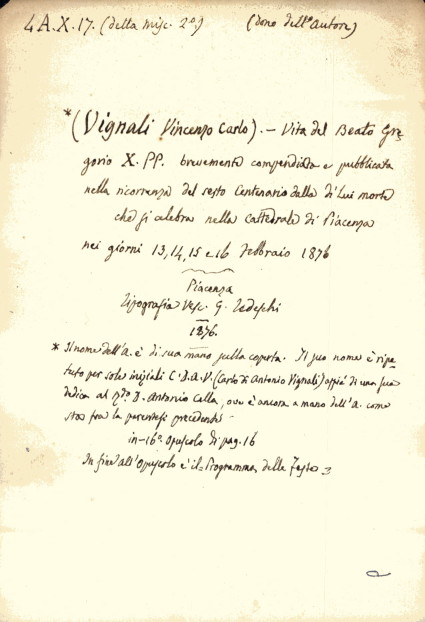 4 A.X.17. (della Misc. 2º) (dono dell'Autore)
*(Vignali Vincenzo Carlo). — Vita del Beato Gre
gorio X. PP. brevemente compendiata e pubblicata
nella ricorrenza del sesto Centenario dalla di Lui morte
che si celebra nella Cattedrale di Piacenza
nei giorni 13, 14, 15 e 16 Febbraio 1876
Piacenza
Tipografia Vesc. G. Tedeschi
1876.
* Il nome dell'A. è di sua mano sulla coperta. Il suo nome è ripe
tuto per sole iniziali C. D. A. V. (Carlo di Antonio Vignali) appiè di una sua
dedica al D. Antonio Calla, ove è ancora a mano dell'A. come
sta fra la parentesi precedente
in-16º Opuscolo di pag. 16
In fine all'Opuscolo è il Programma delle Feste